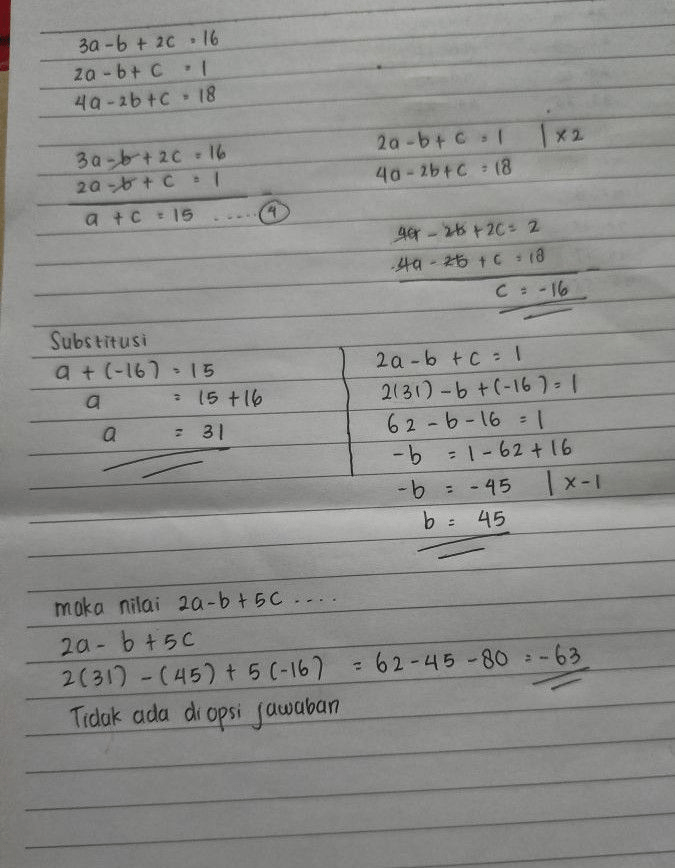 3a-b+2c = 16
2a-b+c = 1
4a-2b+c = 18
3a-b+2c = 16
2a-b+c = 1
a + c = 15 ..... 4
2a-b+c = 1 | x2
4a-2b+c = 18
4a - 2b + 2c = 2
4a - 2b + c = 18
c = -16
Substitusi
a + (-16) = 15
a = 15+16
a = 31
2a-b+c = 1
2(31) -b + (-16) = 1
62 - b - 16 = 1
-b = 1 - 62 + 16
-b = -45 | x -1
b = 45
maka nilai 2a-b+5c ....
2a- b+5c
2(31) - (45) + 5(-16) = 62-45-80 = -63
Tidak ada di opsi jawaban